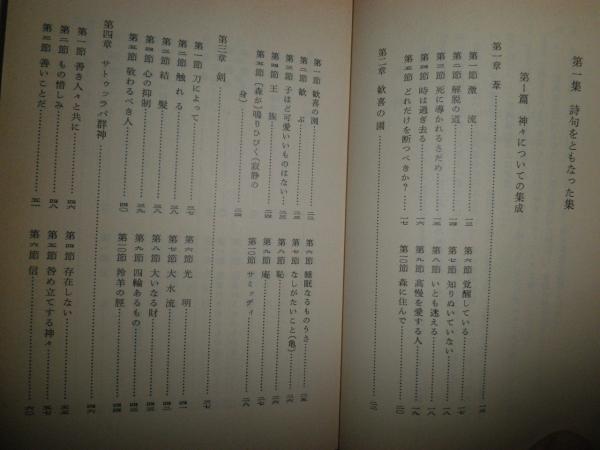 第一集 詩句をともなった集
第Ⅰ篇 神々についての集成
第一章 葦
第一節 激流……一三
第二節 解脱の道
第三節 死に導かれるさだめ
第四節 時は過ぎ去る
第五節 どれだけを断つべきか?……一七
第六節 覚醒している
第七節 知りぬいていない
第八節 いとも迷える……一八
第九節 高慢を愛する人……一九
第一〇節 森に住んで……二〇
第二章 歓喜の園
第一節 歓喜の園
第二節 歓ぶ
第三節 子ほど可愛いいものはない
第四節 王族
第五節 〔森が〕鳴りひびく(寂静の
身)……二四
第六節 睡眠なるものうさ……二五
第七節 なしがたいこと(亀)……二六
第八節 恥
第九節 庵
第一〇節 サミッディ……二八
第三章 剣……三七
第一節 刀によって……三七
第二節 触れる
第三節 結髪
第四節 心の抑制……三九
第五節 敬わるべき人……四〇
第六節 光明……四一
第七節 大水流
第八節 大いなる財
第九節 四輪あるもの
第一〇節 羚羊の脛……四四
第四章 サトゥッラパ群神……四六
第一節 善き人々と共に……四六
第二節 もの惜しみ……四八
第三節 善いことだ……五一
第四節 存在しない……五五
第五節 咎め立てする神々……五七
第六節 信……六〇